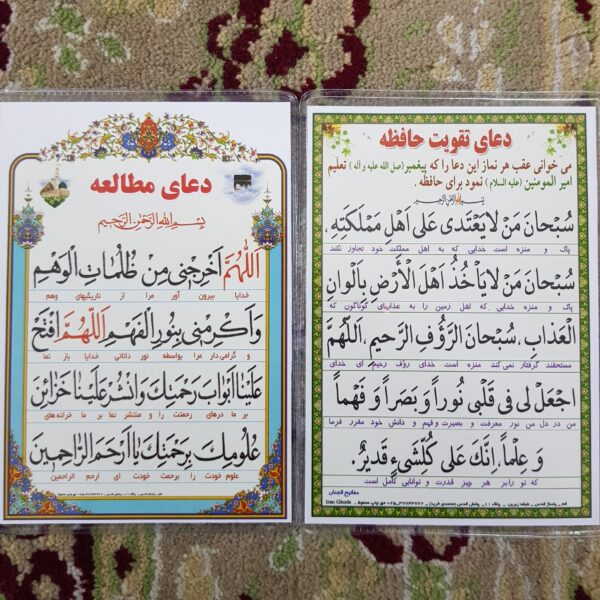 دعای مطالعه
بِسْمِ اللهِ الرَّحْمٰنِ الرَّحيمِ
اَللّهُمَّ اَخْرِجْني مِنْ ظُلُماتِ الْوَهْمِ
خدایا بیرون آور مرا از تاریکیهای وهم
وَاَكْرِمْني بِنُورِ الْفَهْمِ اَللّهُمَّ افْتَحْ
و گرامی دار مرا بواسطه نور دانائی خدایا باز نما
عَلَيْنا اَبْوابَ رَحْمَتِكَ وَانْشُرْ عَلَيْنا خَزائِنَ
بر ما درهای رحمتت را و منتشر نما بر ما خزانه های
عُلُومِكَ بِرَحْمَتِكَ يا اَرْحَمَ الرّاحِمينَ
علوم خودت را برحمت خودت ای ارحم الراحمین
دعای تقویت حافظه
می خوانی عقب هر نماز این دعا را که پیغمبر (صل الله علیه و آله) تعلیم
امیر المومنین (علیه السلام) نمود برای حافظه.
سُبْحانَ مَنْ لا يَعْتَدى عَلى اَهْلِ مَمْلَكَتِهِ.
پاک و منزه است خدایی که به اهل مملکت خود تجاوز نکند
سُبْحانَ مَنْ لا يَأخُذُ اَهْلَ الْاَرْضِ بِاَلْوانِ
پاک و منزه است خدایی که اهل زمین را به عذابهای گوناگون که
الْعَذابِ. سُبْحانَ الرَّؤُفِ الرَّحيمِ. اَللّهُمَّ
مستحقند گرفتار نمی کند منزه است خدای رؤف رحیم ای خدای
اجْعَلْ لى فى قَلْبى نُوراً وَ بَصَراً وَ فَهْماً
من در دل من نور معرفت و بصیرت و فهم و دانش خود مقرر فرما
وَ عِلْماً. اِنَّكَ عَلى كُلِّشَىءٍ قَديرٌ.
که تو را بر هر چیز قدرت و توانایی کامل است
مفاتیح الجنان